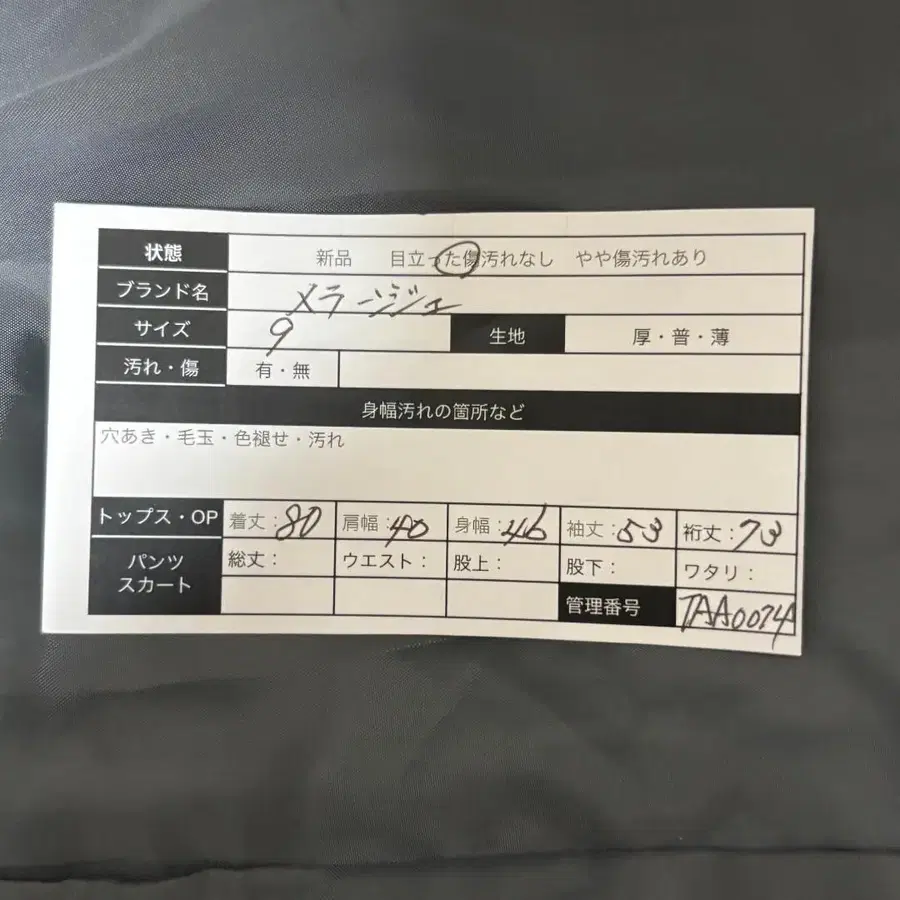 状態 新品 目立った傷汚れなし やや傷汚れあり
ブランド名 メランジェ
サイズ 9 生地 厚・普・薄
汚れ・傷 有・無
身幅汚れの箇所など
穴あき・毛玉・色褪せ・汚れ
トップス・OP 着丈：80 肩幅：40 身幅：46 袖丈：53 裄丈：73
パンツ スカート 総丈： ウエスト： 股上： 股下： ワタリ：
管理番号 TAA0074A